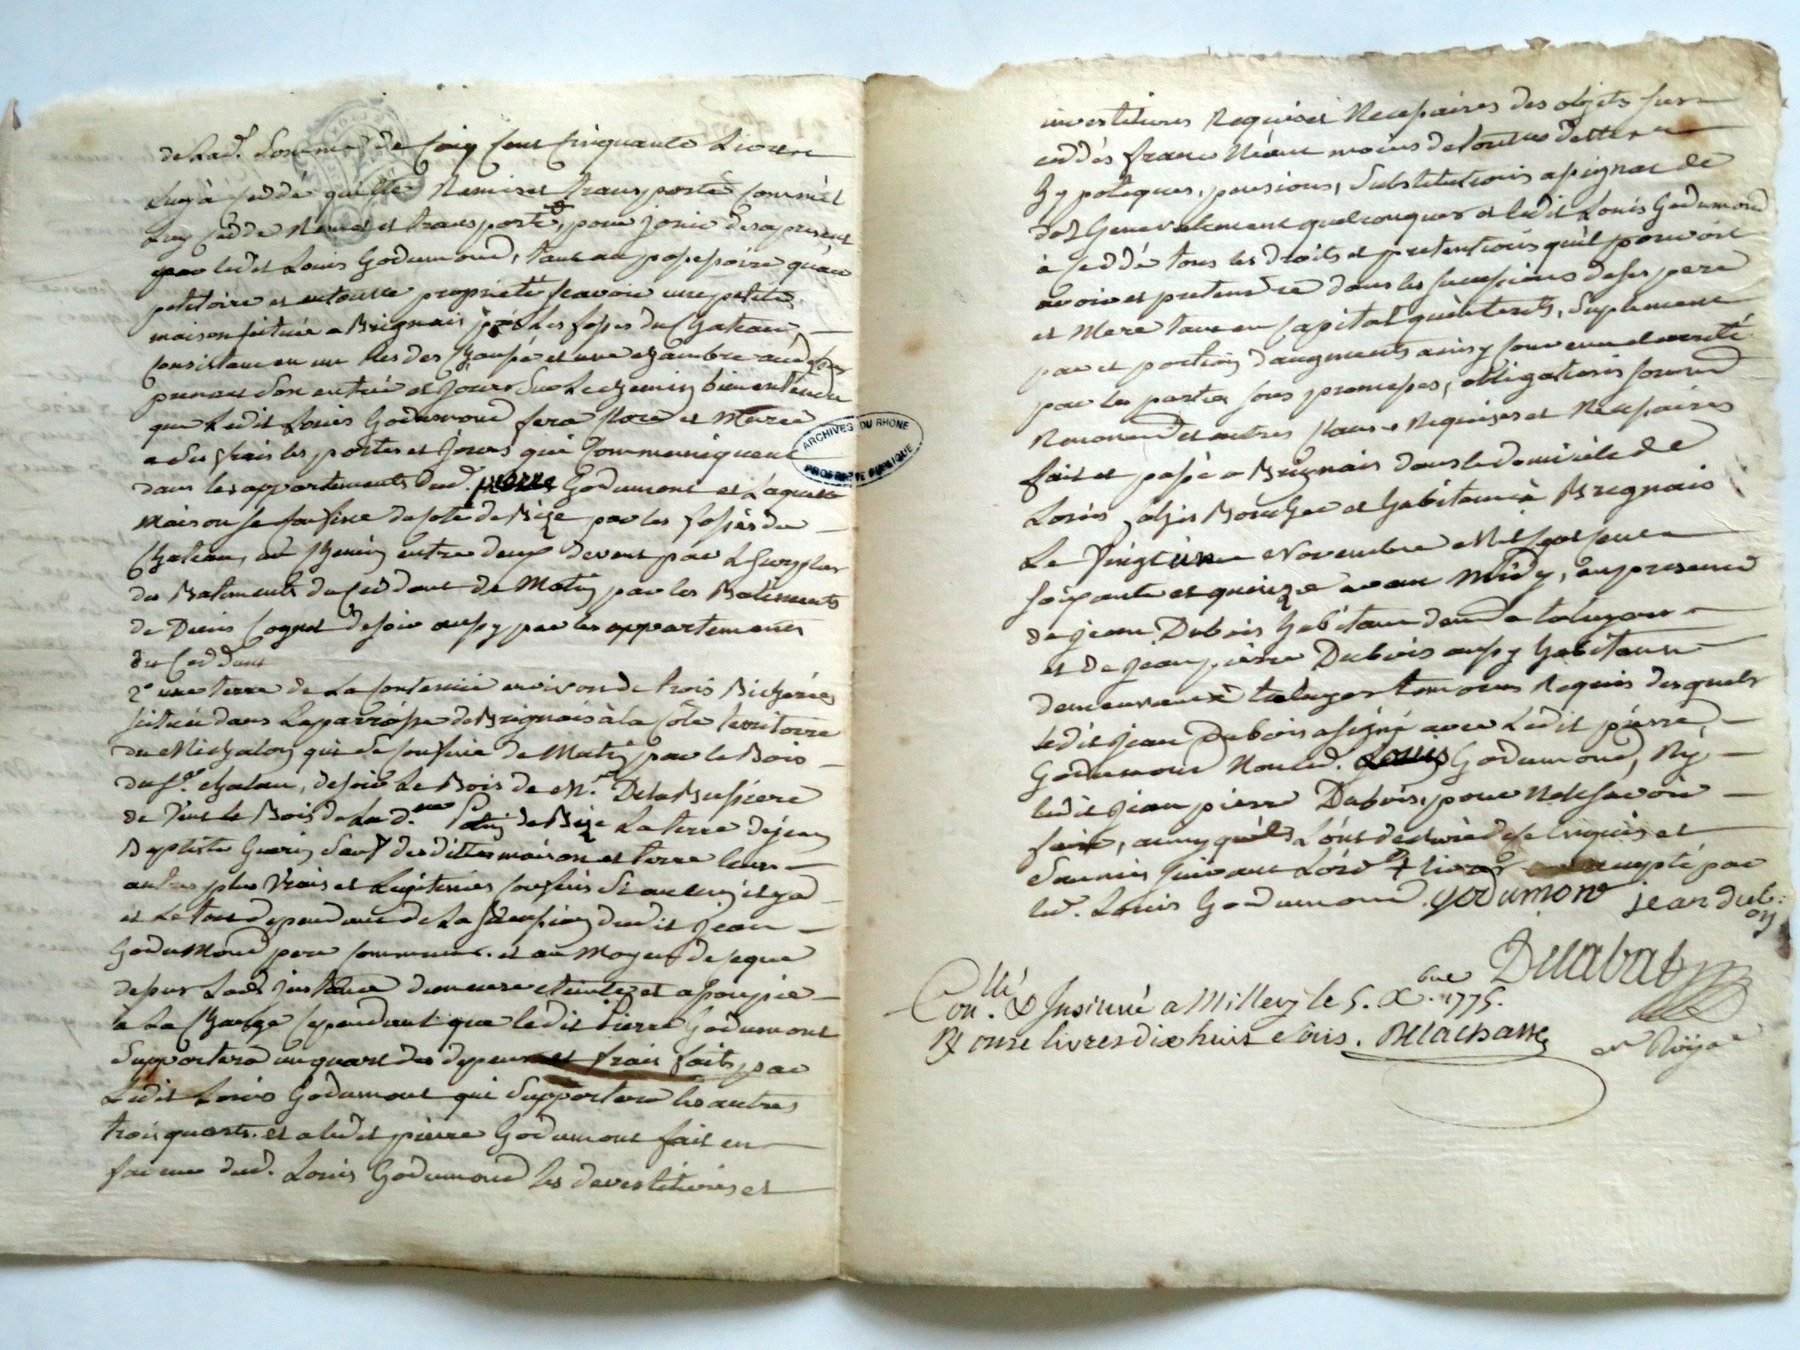 de lad. somme de cinq cent cinquante livres
luy à ceddé quitté Remis et transporté comme il
luy cedde Remet et transporte, pour jouir des apresent
par ledit Louis Godumond, tant au possessoire qu'au
petitoire et en toutte proprieté scavoir une petite
maison située a Brignais près les fossés du Chateau,
consistant en un Rès des Chaussé et une chambre au dessus
prenant son entrée et jours sur le chemin bien entendu
que ledit Louis Godumond fera clore et Murer
a ses frais les portes et jours qui Communiquent
dans les appartements dud. pierre Godumont et laquelle
maison se confine de soté de Bize par les fossés du
Chateau, un Chemin entre deux de vent par le surplus
du Batiments du Ceddant de Matin par les Batiments
de Denis Cognet de soir aussy par les appartements
du Ceddant
2° une terre de la contenue environ de trois Bicherées
située dans la parroisse de Brignais à la Côte territoire
du Michalon qui se confine de Matin par le Bois
du sr. chalan, de soir le Bois de Mr. De la Bussiere
de Vent le Bois de la d.me de Bize la terre de jean
Baptiste Guerin sauf desdittes maison et terre leurs
autres plus Vrais et legitimes confins si aucuns il y a
et le tout dependant de la succession dudit jean
Godumond pere commun. et au Moyen de ceque
dessus lade instance demeure eteinte et assoupie
a la Charge cependant que ledit Pierre Godumont
supportera un quart des depens et frais faits par
ledit Louis Godumont qui supportera les autres
trois quarts. et a ledit pierre Godumont fait en
faveur dud. Louis Godumond les devestitures et
investitures Requises Necessaires des objets sur
ceddés francs Néant moins de toutes dettes
hypoteques, pensions, substitutions assignat de
dot Generalement quelconques et ledit Louis Godumond
à ceddé tous les droits et pretentions qu'il pouvoit
avoir et pretendre dans les successions de ses pere
et Mere tant en capital qu'interets, suplement
part et portion d'augments ainsy convenu et arreté
par les parties sous promesses, obligations soumis
Renonc. et autres clauses Requises et Necessaires
fait et passé a Brignais dans le domicile de
Louis Boucher et habitant à Brignais
le vingt un Novembre Mil sept cent
soixante et quinze avant midy, en presence
de jean Dubois habitant demt a taluyers
et de jean pierre Dubois aussy habitant
demeurant à taluyers temoins Requis desquels
ledit jean Dubois a signé avec ledit pierre
Godumond Non led. Louis Godumond, Ny,
ledit jean pierre Dubois, pour Ne le savoir
faire, ainsy qu'ils l'ont declaré de ce enquis et
sommés suivant l'ord. accepté par
led. Louis Godumond. godumont jean dub
ois
Delabat
Con.llé & Insinué a Millery le 5. Xbre 1775.
Rx onze livres dix huit sous. Delachasse
Not. Royal
ARCHIVES DU RHONE
PROPRIETE PUBLIQUE